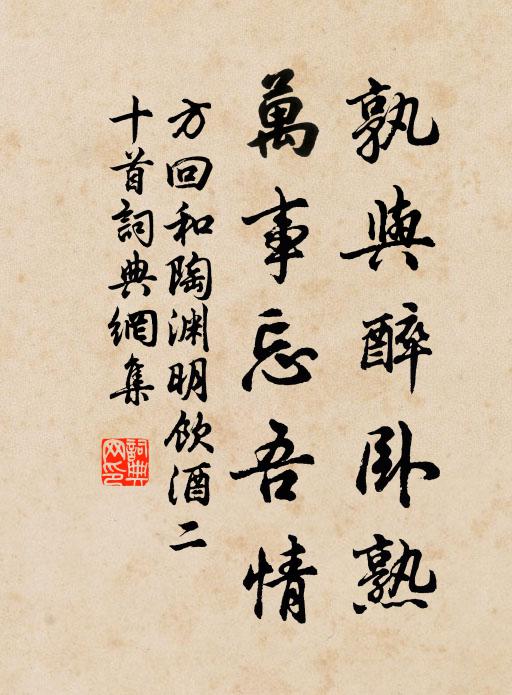 孰與醉卧熟
萬事忘吾情
方回和陶渊明飲酒二
十首詞典網集
詞典
网印